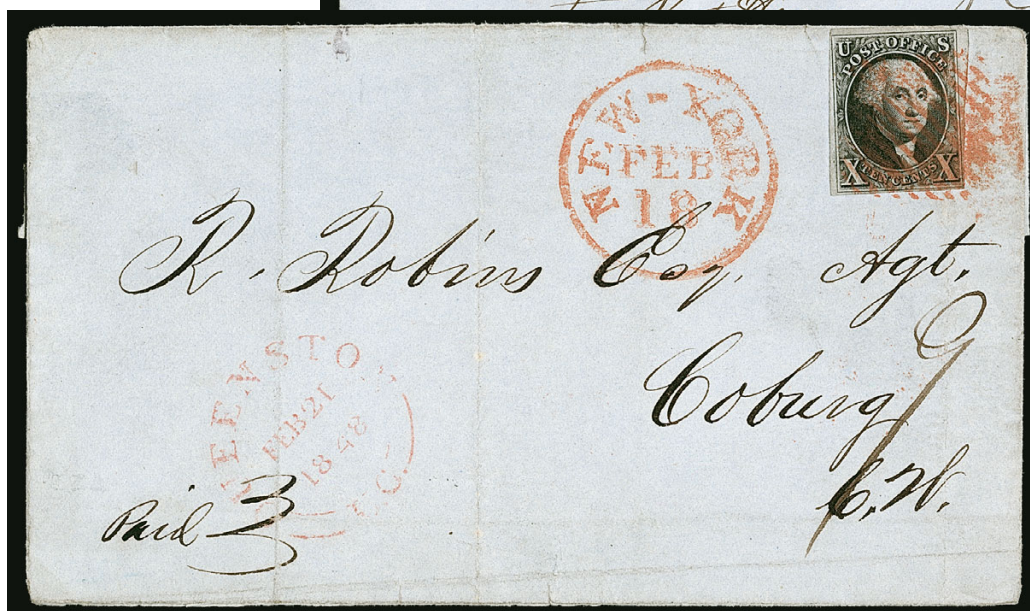 U S
POST OFFICE
X TEN CENTS X
NEW-YORK
FEB
18
R. Robins Esq. Agt.
Coburg
C.W.
9
FEB 21
1848
Paid 3